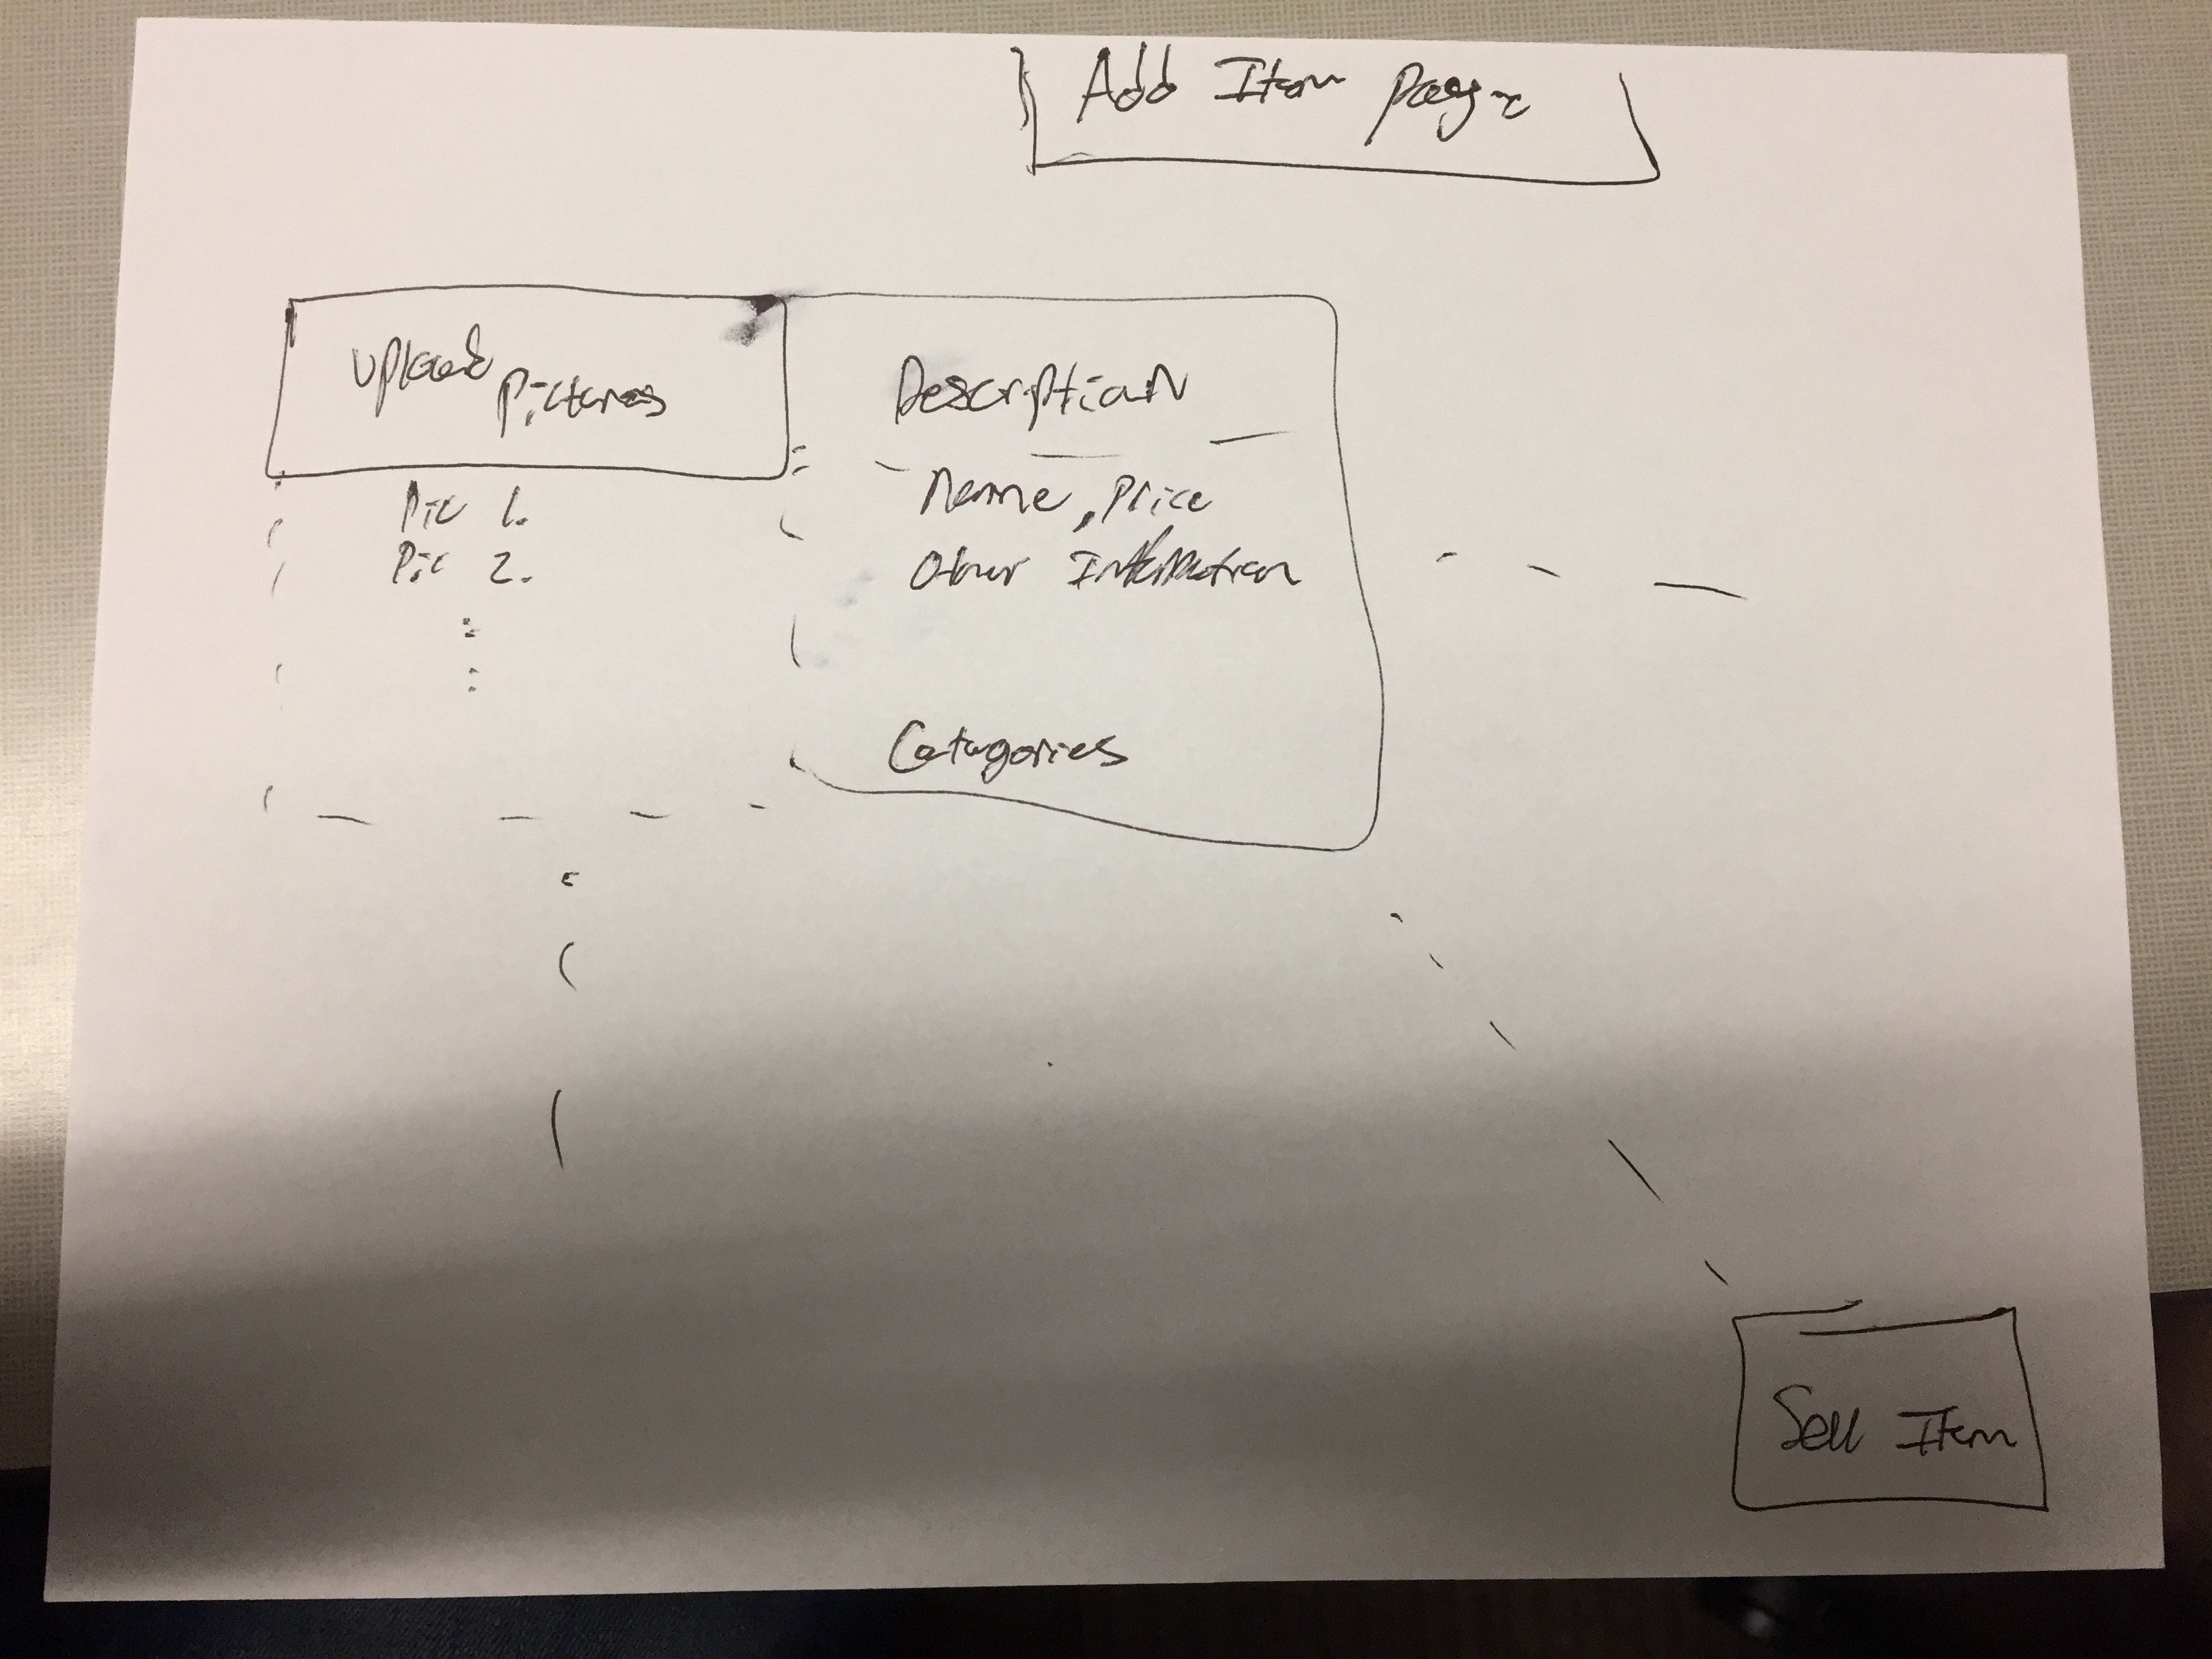 Add Item Page
Upload Pictures
Pic 1.
Pic 2.
Description
Name, Price
Other Information
Catagories
Sell Item